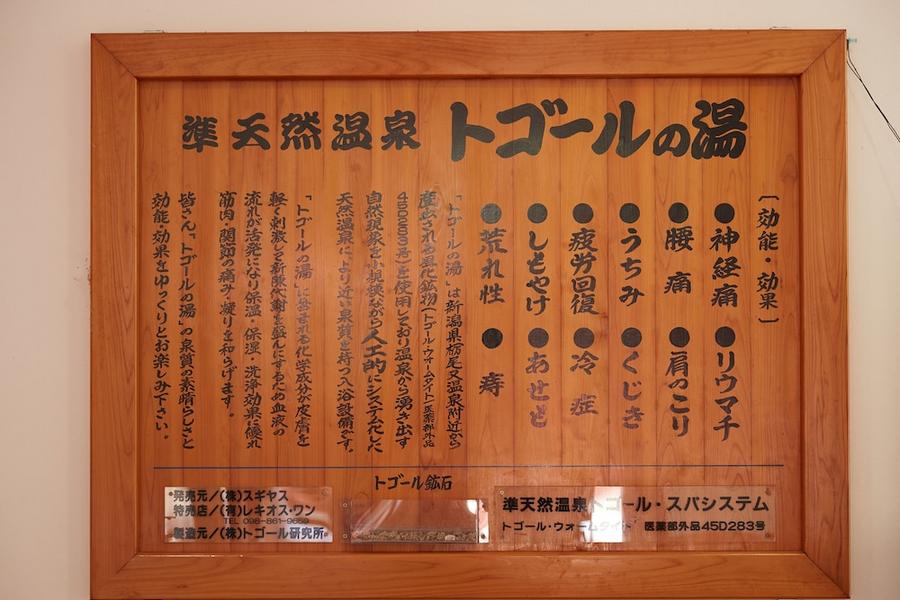 準天然温泉 トゴールの湯
〔効能・効果〕
●神経痛 ●リウマチ
●腰痛 ●肩のこり
●うちみ ●くじき
●疲労回復 ●冷症
●しもやけ ●あせも
●荒れ性 ●痔
「トゴールの湯」は新潟県栃尾又温泉附近から
産出される風化鉱物(トゴール・ウォームタイト)医薬部外品
45D283号)を使用しており温泉から湧き出す
自然現象を小規模ながら人工的にシステム化した
天然温泉に、より近い泉質を持つ入浴設備です。
「トゴールの湯」に含まれる化学成分が皮膚を
軽く刺激する新陳代謝を盛んにするため血液の
流れが活発になり保温・保湿・洗浄効果に優れ
筋肉・関節の痛み・凝りを和らげます。
皆さん、「トゴールの湯」の泉質の素晴らしさと
効能・効果をゆっくりとお楽しみ下さい。
トゴール鉱石
発売元/(株)スギヤス
特売店/(有)レキオス・ワン
TEL 098-861-9659
製造元/(株)トゴール研究所
準天然温泉トゴール・スパシステム
トゴール・ウォームタイト 医薬部外品45D283号